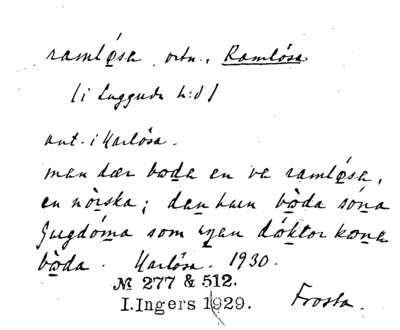 ramlǫ́sa ortn., Ramlösa
(i Luggude h:d)
ant. i Harlösa.
man dær boda en va ramlǫ́sa,
en nòrska; dan hun bǫ̀da sóna
Sugdóma som iŋan dóktor kona
bǫ̀da. Harlösa. 1930.
№ 277 & 512.
I.Ingers 1929. Frosta.